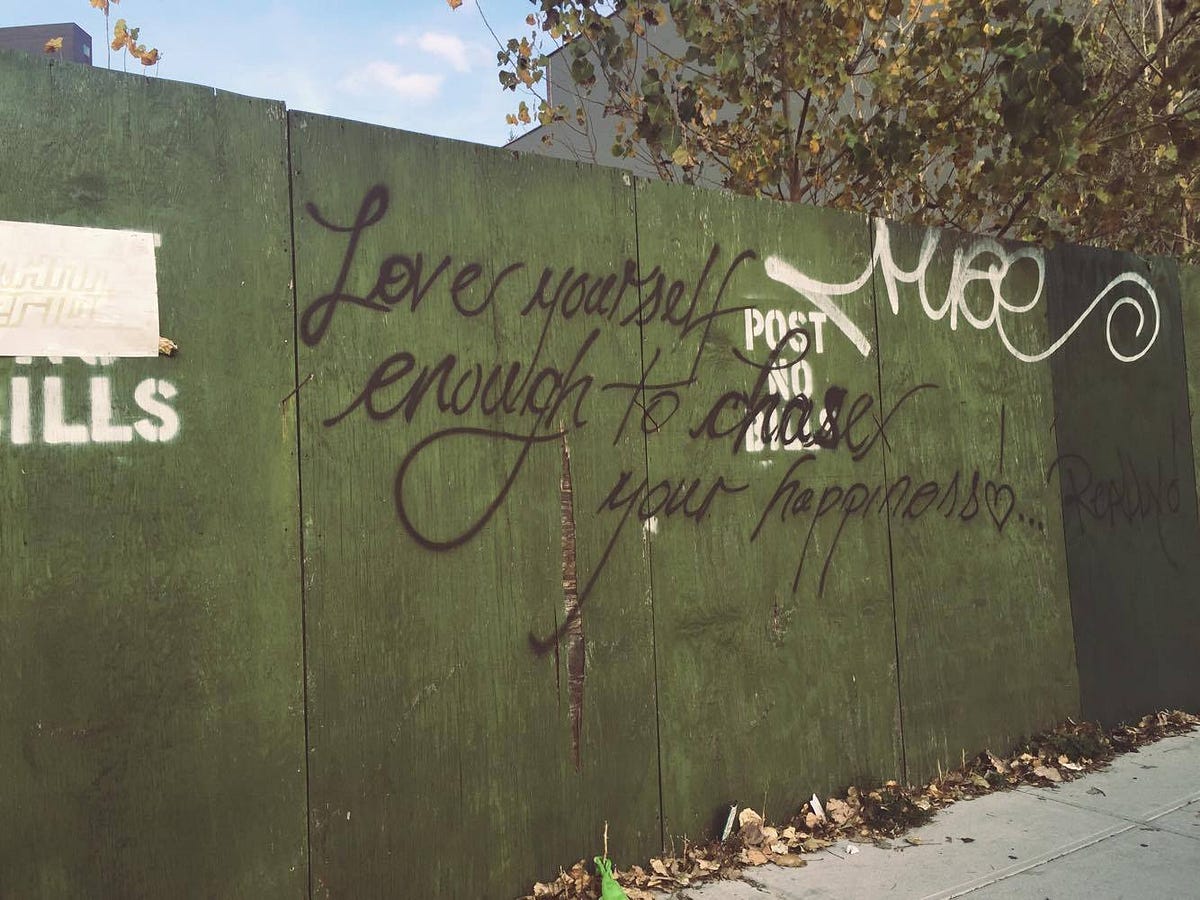 BILLS
Love yourself
enough to chase
your happiness♡...
POST
NO
BILLS